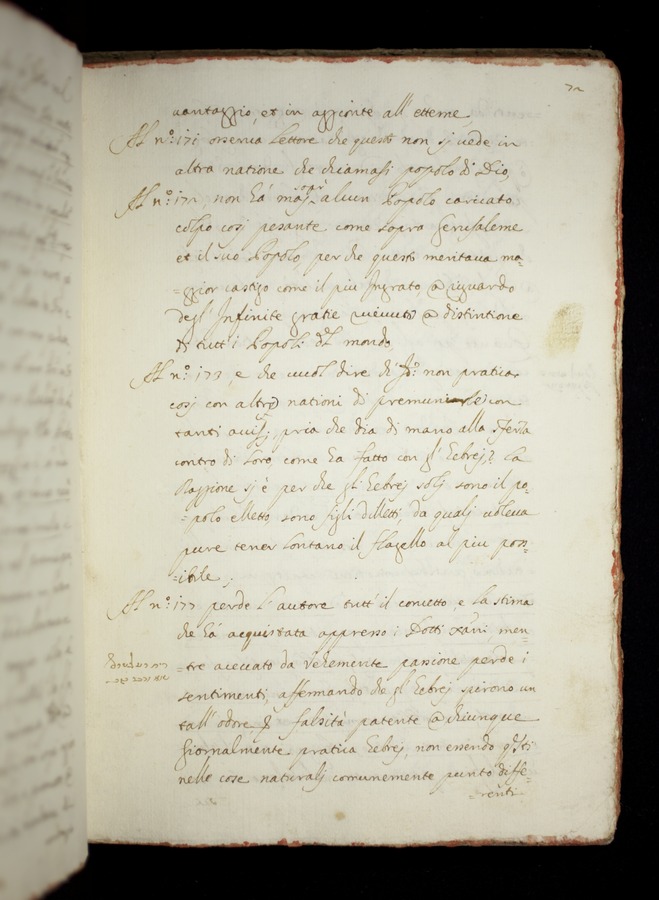 72
uantaggio, et in aggionte all' etterne
Al n.º 171 osserua Lettore che questo non si uede in
altra natione che chiamasi popolo di Dio,
Al n.º 172 non hà mai sopra alcun Popolo caricato
colpo così pesante come sopra Gerusaleme
et il suo Popolo, perche questo meritaua ma-
=ggior castigo come il piu Ingrato, a riguardo
degl' Infinite gratie riceuute a distintione
di tutt' i Popoli del mondo
Al n.º 173, e che uuol dire ch' non pratica
così con altre nationi di premunirle con
tanti auisi, pria che dia di mano alla sferza
contro di loro, come hà fatto con gl' Eebrej? La
Raggione si è perche gli Eebrej solj sono il po-
=polo elletto, sono figli diletti, da qualj uoleua
pure tener lontano il flagello al piu poss-
=ibile;
Al n.º 177 perde l' autore tutt' il concetto, e la stima
che hà acquistata appresso i Dotti men-
=tre acceccato da vehemente passione perde i
sentimenti, affermando che gl' Eebrej spirono un
tall' odore, falsità patente a chiunque
giornalmente pratica Eebrej, non essendo
nelle cose naturalj comunemente punto diffe-
=renti